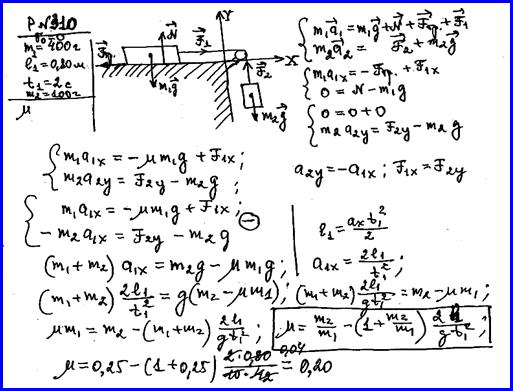 P № 310
v₀=0
m₁=400г
ℓ₁=0,80м
t₁=2с
m₂=100г
μ
Y
N
F₁
Fтр.
X
m₁g
F₂
m₂g
m₁a₁ = m₁g + N + Fтр. + F₁
m₂a₂ = F₂ + m₂g
m₁a₁ₓ = −Fтр. + F₁ₓ
0 = N − m₁g
0 = 0 + 0
m₂a₂y = F₂y − m₂g
m₁a₁ₓ = −μm₁g + F₁ₓ;
m₂a₂y = F₂y − m₂g
a₂y = −a₁ₓ; F₁ₓ = F₂y
m₁a₁ₓ = −μm₁g + F₁ₓ;
−m₂a₁ₓ = F₂y − m₂g
−
ℓ₁ = aₓt₁²/2
a₁ₓ = 2ℓ₁/t₁²;
(m₁+m₂) a₁ₓ = m₂g − μm₁g;
(m₁+m₂) 2ℓ₁/t₁² = g(m₂ − μm₁); (m₁+m₂) 2ℓ₁/gt₁² = m₂ − μm₁;
μm₁ = m₂ − (m₁+m₂) 2ℓ₁/gt₁²; μ = m₂/m₁ − (1 + m₂/m₁) 2ℓ₁/gt₁²;
μ = 0,25 − (1+0,25) 2·0,80/10·4 0,04 = 0,20